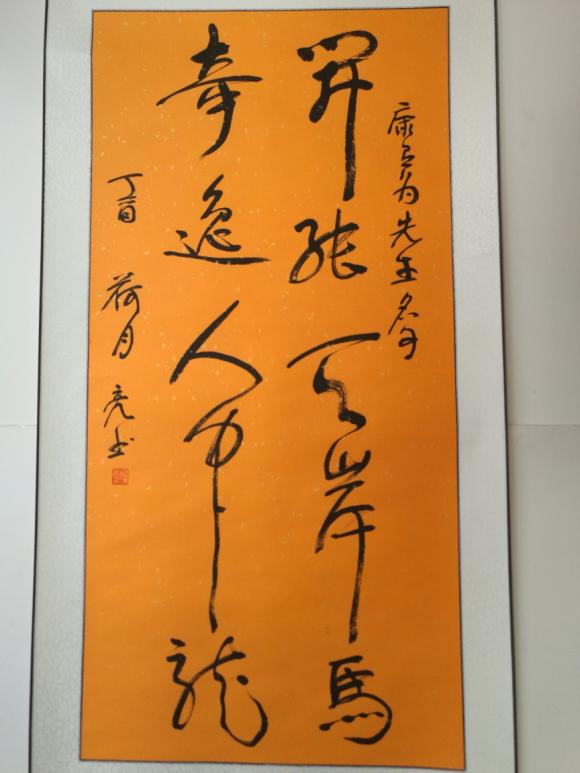 康有为先生名句
開張天岸馬
奇逸人中龍
丁酉 荷月 亮书